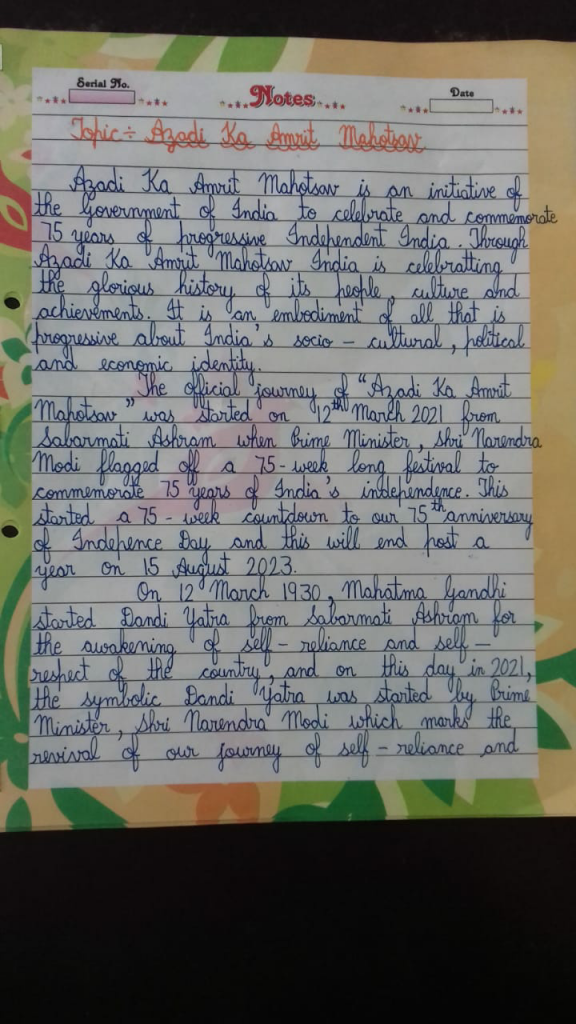 Serial No.
Notes
Date
Topic ÷ Azadi Ka Amrit Mahotsav
Azadi Ka Amrit Mahotsav is an initiative of
the Government of India to celebrate and commemorate
75 years of progressive Independent India. Through
Azadi Ka Amrit Mahotsav India is celebratting
the glorious history of its people, culture and
achievements. It is an embodiment of all that is
progressive about India's socio - cultural, political
and economic identity.
The official journey of "Azadi Ka Amrit
Mahotsav" was started on 12th March 2021 from
Sabarmati Ashram when Prime Minister, Shri Narendra
Modi flagged off a 75-week long festival to
commemorate 75 years of India's independence. This
started a 75-week countdown to our 75th anniversary
of Indepence Day and this will end post a
year on 15 August 2023.
On 12 March 1930, Mahatma Gandhi
started Dandi Yatra from Sabarmati Ashram for
the awakening of self-reliance and self-
respect of the country, and on this day, in 2021,
the symbolic Dandi Yatra was started by Prime
Minister, Shri Narendra Modi which marks the
revival of our journey of self-reliance and